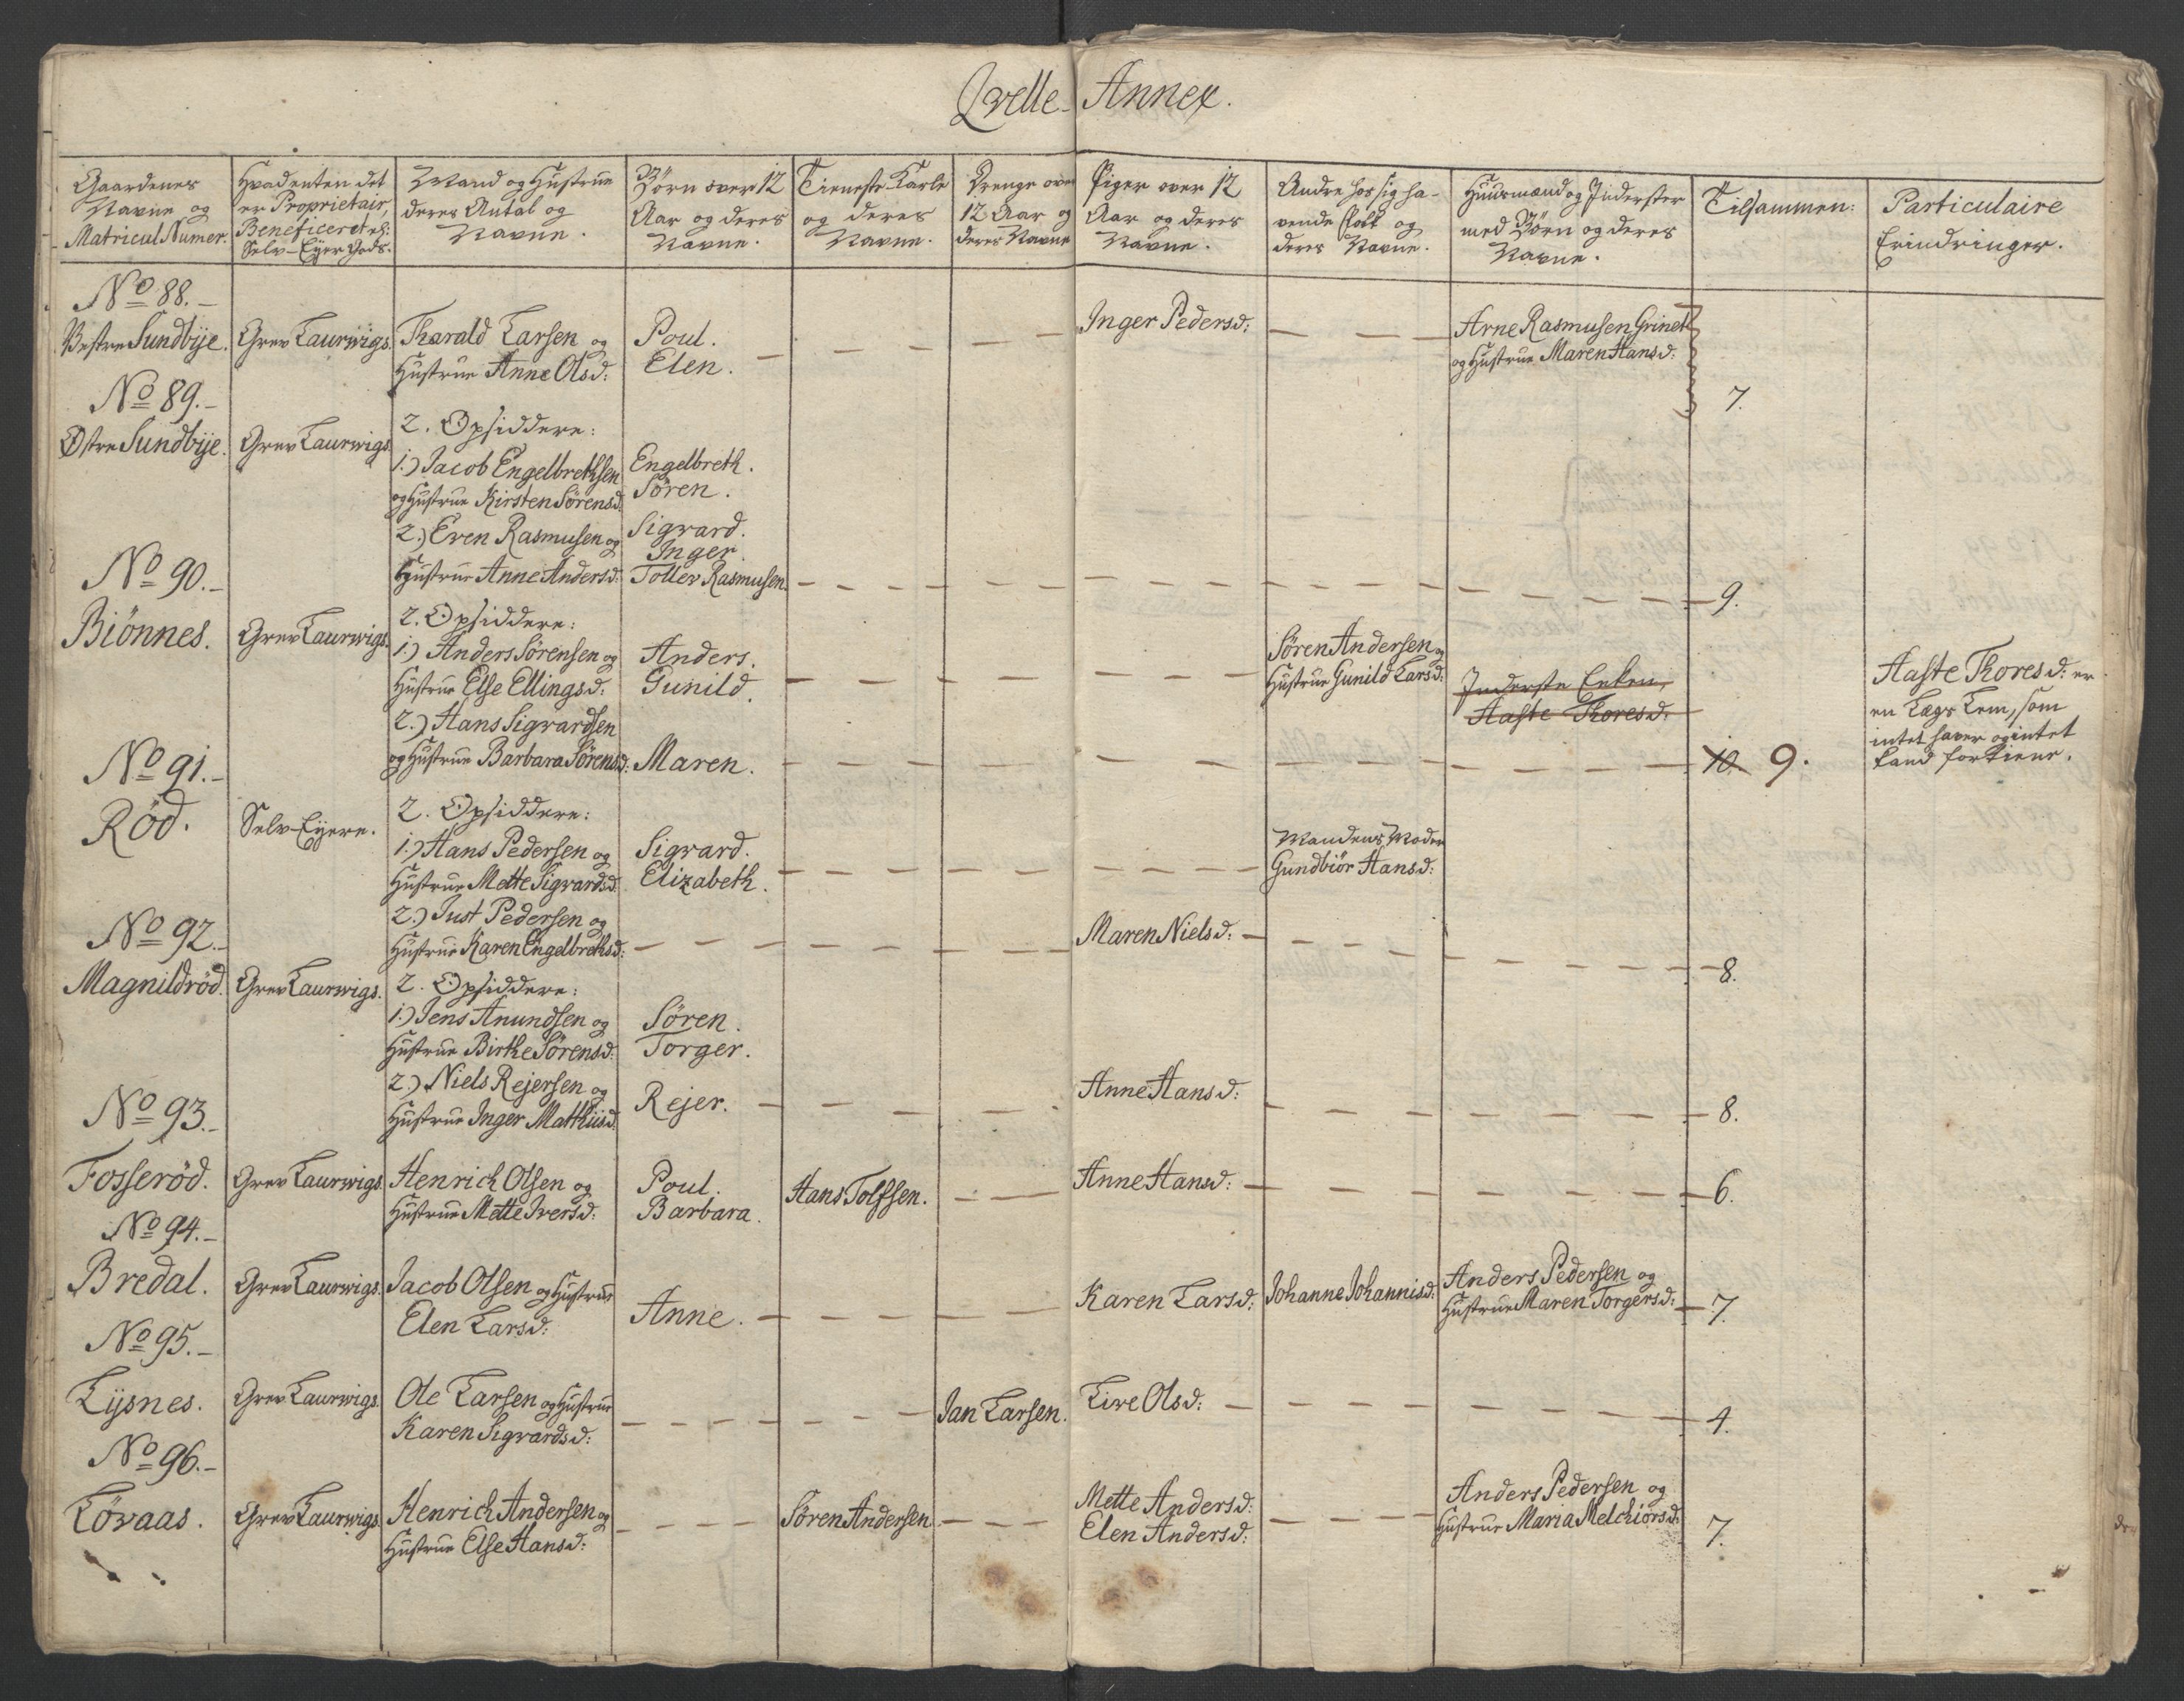 Qvelle- Annex.
Gaardenes
Navne og
Matricul Numer.
Hvadenten det
er Proprietair,
Beneficeret el:
Selv-Eyer Gods.
Mand og Hustrue
deres Antal og
Navne.
Börn over 12
Aar og deres
Navne.
Tieneste Karle
og deres
Navne.
Drenge over
12 Aar og
deres Navne
Piger over 12
Aar og deres
Navne.
Andre hos sig ha-
vende Folk og
deres Navne.
Huusmænd og Inderster
med Börn og deres
Navne.
Tilsammen:
Particulaire
Erindringer.
No 88.-
Vestre Sundbye. Grev Laurwigs. Tharald Larsen og Poul. Inger Pedersd: Arne Rasmusen Grinet
Hustrue Anne Olsd: Elen. og Hustrue Maren Hansd:
7.
No 89.-
Østre Sundbye. Grev Laurwigs. 2. Opsiddere:
1.) Jacob Engelbrethsen Engelbreth.
og Hustrue Kirsten Sörensd. Sören.
2.) Even Rasmusen og Sigvard.
Inger
Hustrue Anne Andersd: Toller Rasmusen. 9.
No 90.-
Biönnes. Grev Laurwigs. 2. Opsiddere:
1.) Anders Sörensen og Anders. Sören Andersen og
Hustrue Else Ellingsd: Gunild. Hustrue Gunild Larsd: Inderste Enken,
Aaste Thoresd:
2.) Hans Sigvardsen
og Hustrue Barbara Sörensd: Maren. 10. 9.
Aaste Thoresd: er
en Lægs Lem, som
intet haver og intet
kand fortiene.
No 91.-
Röd. Selv-Eyere. 2. Opsiddere:
1.) Hans Pedersen og Sigvard. Mandens Moder
Hustrue Mette Sigvardsd. Elizabeth. Gundbiör Hansd:
2.) Just Pedersen og
Hustrue Karen Engelbrethsd: Maren Nielsd: 8.
No 92.-
Magnildröd. Grev Laurwigs. 2. Opsiddere:
1.) Jens Anundsen og Sören.
Hustrue Birthe Sörensd: Torger.
2.) Niels Rejersen og Rejer. Anne Hansd:
Hustrue Inger Matthiisd: 8.
No 93.-
Fosseröd. Grev Laurwigs. Henrich Olsen og Poul. Hans Tolfsen. Anne Hansd: 6.
Hustrue Mette Iversd: Barbara.
No 94.-
Bredal. Grev Laurwigs. Jacob Olsen og Hustrue Anne. Karen Larsd: Johanne Johannisd: Anders Pedersen og
Elen Larsd: Hustrue Maren Torgersd: 7.
No 95.-
Lysnes. Grev Laurwigs. Ole Larsen og Hustrue Jan Larsen. Live Olsd: 4.
Karen Sigvardsd:
No 96.-
Lövaas. Grev Laurwigs. Henrich Andersen og Sören Andersen Mette Andersd: Anders Pedersen og
Hustrue Else Hansd: Elen Andersd: Hustrue Maria Melchiorsd: 7.